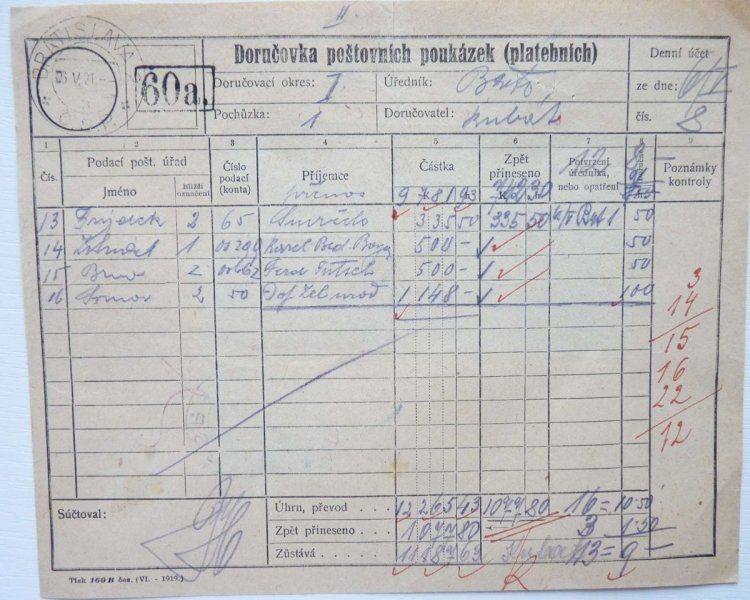 II.
BRATISLAVA
Č.S.P.
60a.
Doručovka poštovních poukázek (platebních)
Doručovací okres: I
Úředník:
Pochůzka: 1
Doručovatel: Kubát
Denní účet
ze dne: 6/V
čís. 8
1 2 3 4 5 6 7 8 9
Čís.
Podací pošt. úřad
Jméno
Bližší označení
Číslo podací (konta)
Příjemce
přenos
Částka
K h
9781 93
Zpět přineseno
K h
Potvrzení úředníka, nebo opatření
Poznámky kontroly
13 Frýdek 2 65 335 50 335 50 50
14 1 00290 Karel 500 - 50
15 Brno 2 500 - 50
16 2 50 1148 - 100
3
14
15
16
22
12
Súčtoval:
Úhrn, převod . . . 12265 43 1077 80 16 = 10·50
Zpět přineseno . . . 1077 80 3 1·50
Zůstává . . . 11187 63 13 = 9 -
Tisk 160 B čes. (VI. - 1919.)